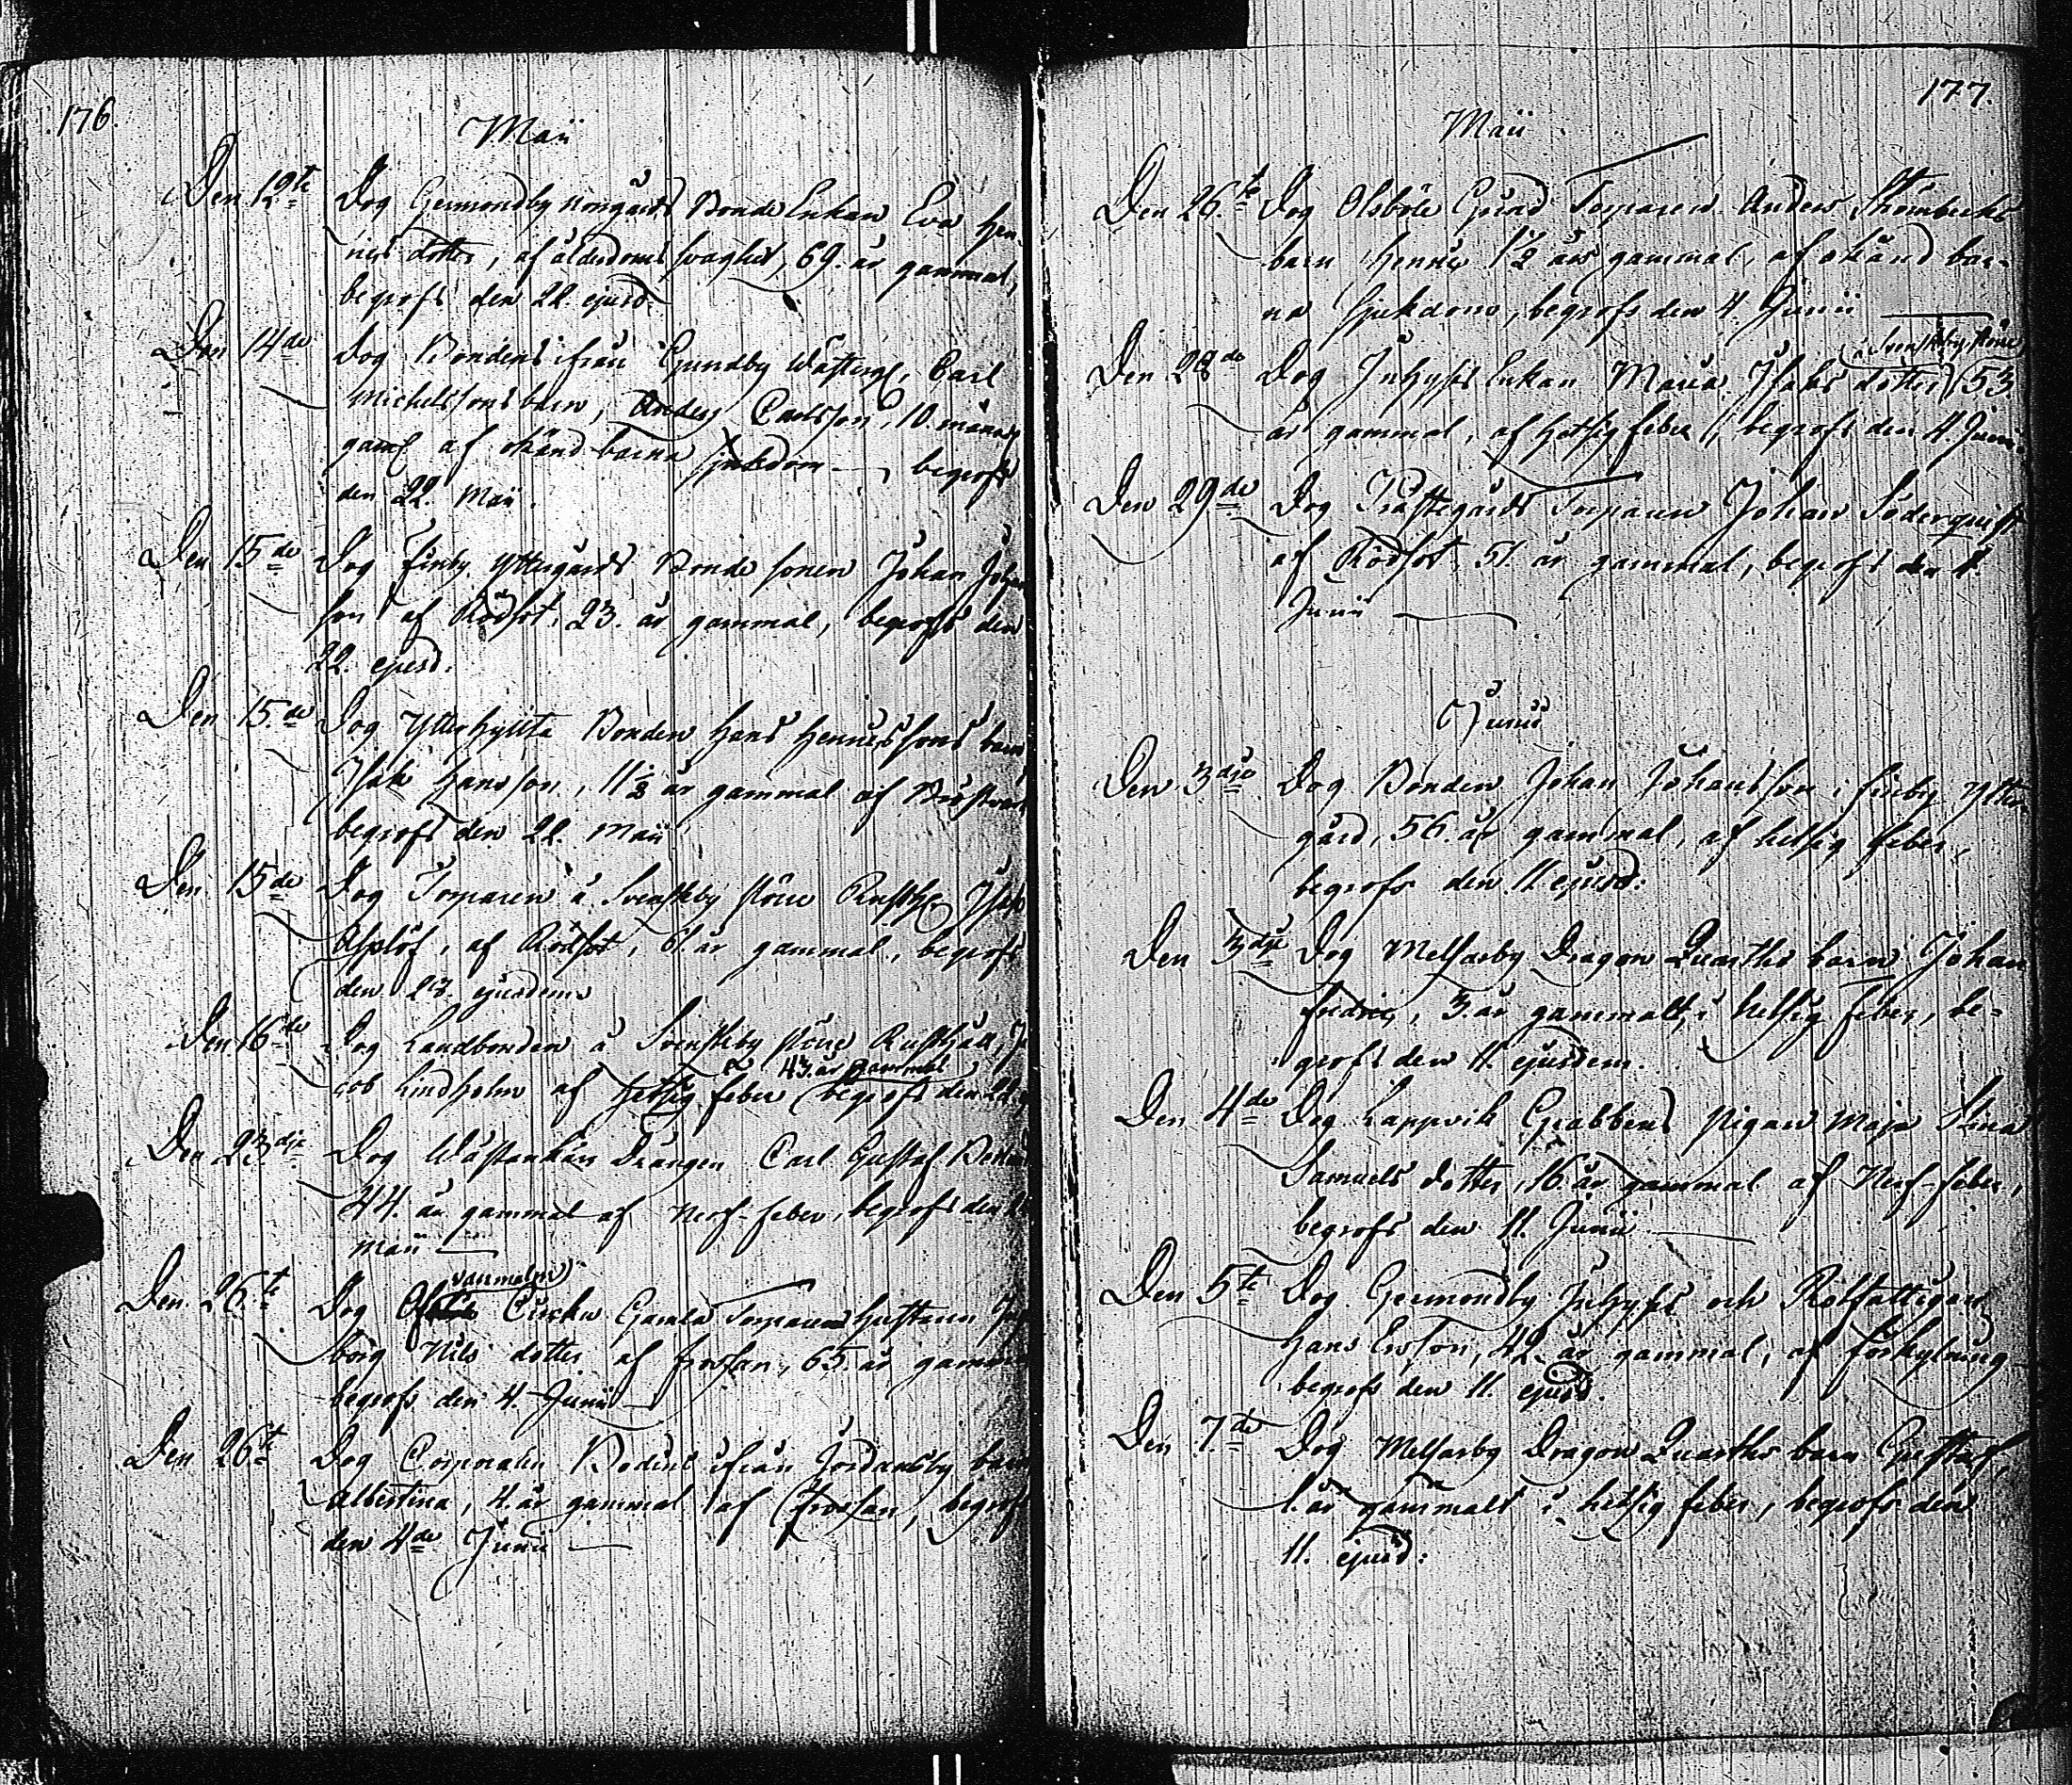 176.
Maii
Den 12te Dog Germundby norrgårds Bonde Enkan Eva Hen-
rics dotter, af ålderdoms svaghet, 69. år gammal,
begrofs den 22. ejusd.
Den 14de Dog Bondens ifrån Gundby Carl
Michelssons barn, Anders Carlsson, 10. månad
gaml af okänd barna sjukdom begrofs
den 22. Maii.
Den 15de Dog Finby Yttergårds Bonde sonen Johan Johan
son af Rödsot, 23. år gammal, begrofs den
22. ejusd.
Den 15.de Dog Ytterhyllta Bonden Hans Henricssons barn
Isak Hansson, 11 1/2 år gammal af
begrofs den 22. Maii
Den 15de Dog Torparen å Svenskby störe Isak
Asplöf, af Rödsot, år gammal, begrofs
den 23. ejusdem
Den 16de Dog Landbonden å Svenskby störe Rusthåll, Ja
43. år gammal
cob Lindholm af hetsig feber begrofs den 22.
Den 23dje Dog Wästankärr Drängen Carl Gustaf
44. år gammal af Nerf-feber, begrofs den
Maii
vanmelm
Den 26te Dog Gamla Torpare Hustrun
borg Nils dotter af frossan, 65. år gammal
begrofs den 4. Junii
Den 26te Dog Corporalen Bodins ifrån Jordansby barn
Albertina, 4. år gammal af Frossan, begrofs
den 4de Junii
177.
Maii
Den 26.te Dog Olsböle Gård Torparen Anders Strömbecks
barn Henric 1 1/2 års gammal, af okänd bar-
na sjukdom, begrofs den 4 Junii
å Svenskby störe
Den 28de Dog Inhyses Enkan Maria Isaks dotter 53.
år gammal, af hetsig feber, begrofs den 4 Junii.
Den 29de Dog Prästegårds Torparen Johan Söderquist
af Rödsot, 51. år gammal, begrofs den 4.
Junii
Junii
Den 3dje Dog Bonden Johan Johansson i Finby Ytter
gård, 56. år gammal, af hetsig feber,
begrofs den 11. ejusd:
Den 3dje Dog Melsarby Dragon Quarths barn Johan
Fredric, 3. år gammalt, i hetsig feber, be-
grofs den 11. ejusdem.
Den 4de Dog Lappvik Grabbens Pigan Maja Stina
Samuels dotter, 16. år gammal af Nerf-feber,
begrofs den 11. Junii
Den 5te Dog Germundby Inhyses och Rotfattigen
Hans Ersson, 42. år gammal, af förkylning
begrofs den 11. ejusd.
Den 7.de Dog Melsarby Dragon Quarths barn Gustaf,
1. år gammalt i hetsig feber, begrofs den
11. ejusd: